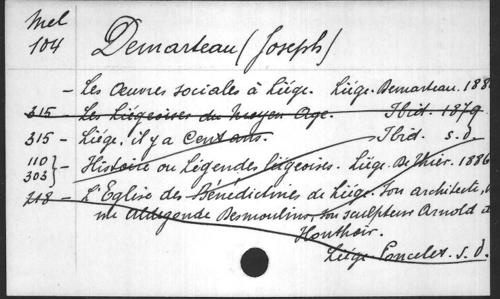 Mel
104
Demarteau (Joseph)
- Les Oeuvres sociales à Liége. Liége. Demarteau. 188
315 - Les Liégeoises du Moyen Age. Ibid. 1879.
315 - Liége, il y a Cent ans. Ibid. s.d.
110
303 } - Histoire ou Légendes liégeoises. Liége. De Thier. 1886
218 - L'Eglise des Bénédictines de Liége. Son architecte,
Aldegonde Desmoulins, son sculpteur Arnold
Honthoir.
Liége. Poncelet. s.d.